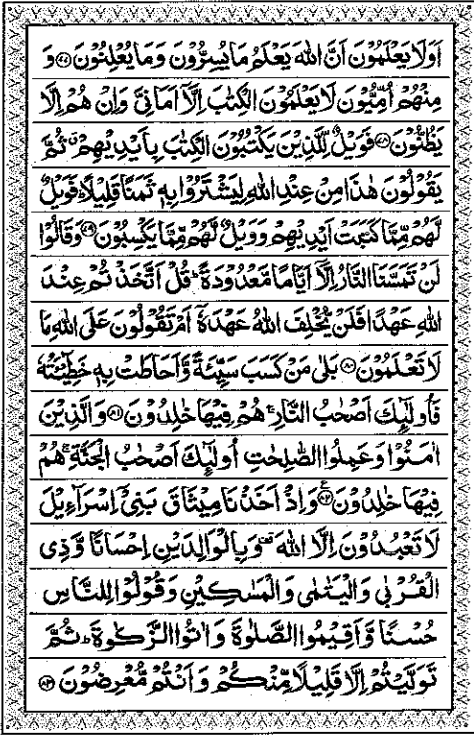 اَوَلَا يَعْلَمُوْنَ اَنَّ اللهَ يَعْلَمُ مَا يُسِرُّوْنَ وَمَا يُعْلِنُوْنَ ﴿۷۷﴾ وَ
مِنْهُمْ اُمِّيُّوْنَ لَا يَعْلَمُوْنَ الْكِتٰبَ اِلَّآ اَمَانِيَّ وَاِنْ هُمْ اِلَّا
يَظُنُّوْنَ ﴿۷۸﴾ فَوَيْلٌ لِّلَّذِيْنَ يَكْتُبُوْنَ الْكِتٰبَ بِاَيْدِيْهِمْ ثُمَّ
يَقُوْلُوْنَ هٰذَا مِنْ عِنْدِ اللهِ لِيَشْتَرُوْا بِهٖ ثَمَنًا قَلِيْلًا ؕ فَوَيْلٌ
لَّهُمْ مِّمَّا كَتَبَتْ اَيْدِيْهِمْ وَوَيْلٌ لَّهُمْ مِّمَّا يَكْسِبُوْنَ ﴿۷۹﴾ وَقَالُوْا
لَنْ تَمَسَّنَا النَّارُ اِلَّآ اَيَّامًا مَّعْدُوْدَةً ؕ قُلْ اَتَّخَذْتُمْ عِنْدَ
اللهِ عَهْدًا فَلَنْ يُّخْلِفَ اللهُ عَهْدَهٗٓ اَمْ تَقُوْلُوْنَ عَلَى اللهِ مَا
لَا تَعْلَمُوْنَ ﴿۸۰﴾ بَلٰى مَنْ كَسَبَ سَيِّئَةً وَّاَحَاطَتْ بِهٖ خَطِيْٓـَٔتُهٗ
فَاُولٰٓئِكَ اَصْحٰبُ النَّارِ ۚ هُمْ فِيْهَا خٰلِدُوْنَ ﴿۸۱﴾ وَالَّذِيْنَ
اٰمَنُوْا وَعَمِلُوا الصّٰلِحٰتِ اُولٰٓئِكَ اَصْحٰبُ الْجَنَّةِ ۚ هُمْ
فِيْهَا خٰلِدُوْنَ ﴿۸۲﴾ وَاِذْ اَخَذْنَا مِيْثَاقَ بَنِيْٓ اِسْرَآءِيْلَ
لَا تَعْبُدُوْنَ اِلَّا اللهَ وَبِالْوَالِدَيْنِ اِحْسَانًا وَّذِى
الْقُرْبٰى وَالْيَتٰمٰى وَالْمَسٰكِيْنِ وَقُوْلُوْا لِلنَّاسِ
حُسْنًا وَّاَقِيْمُوا الصَّلٰوةَ وَاٰتُوا الزَّكٰوةَ ؕ ثُمَّ
تَوَلَّيْتُمْ اِلَّا قَلِيْلًا مِّنْكُمْ وَاَنْتُمْ مُّعْرِضُوْنَ ﴿۸۳﴾